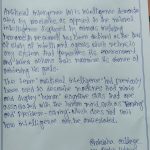 Artificial Intelligence (AI) is intelligence demonstr-
ated by machines, as opposed to the natural
intelligence displayed by animals including
humans. AI research has been defined as the field
of study of intelligent agents, which refers to
any system that perceives its environment
and takes actions that maximize its chance of
achieving its goals.
The term "artificial intelligence" had previously
been used to describe machines that mimic
and display "human" cognitive skills that are
associated with the human mind, such as "learning"
and "problem-solving", which does not
how intelligence can be articulated.
college